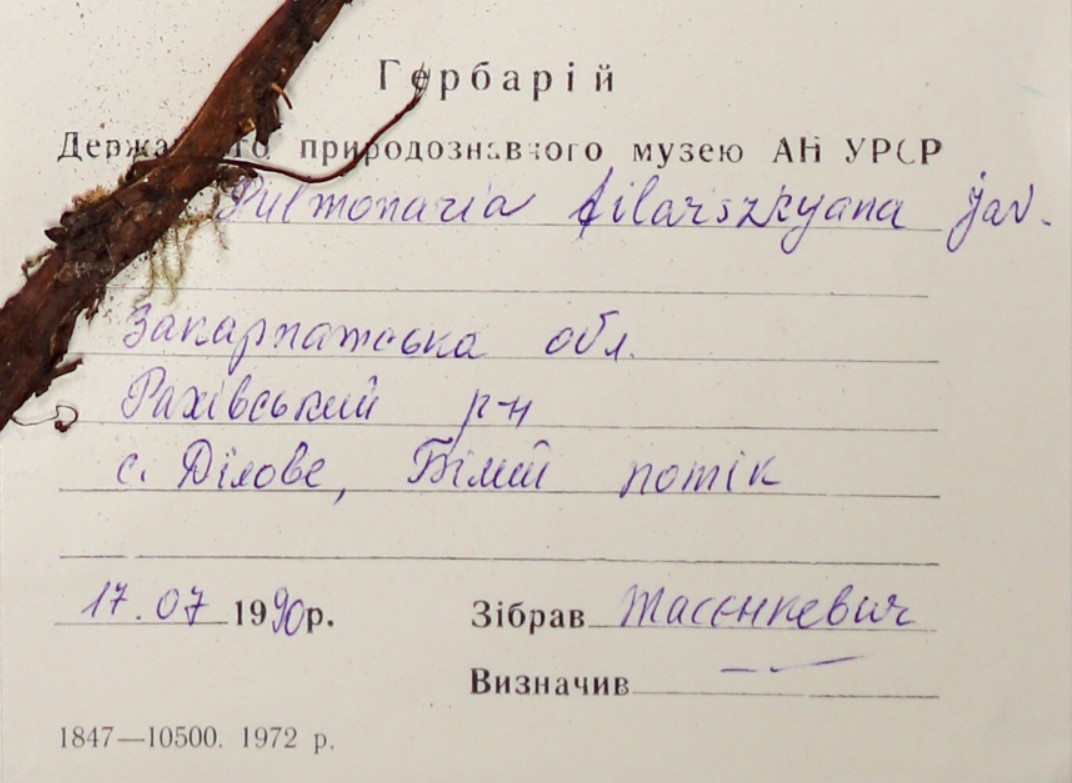 Гербарій
Державного природознавчого музею АН УРСР
Pulmonaria filarszkyana Jav.
Закарпатська обл.
Рахівський р-н
с. Ділове, Білий потік
17.07 1990р. Зібрав Тасєнкевич
Визначив —〃—
1847—10500. 1972 р.